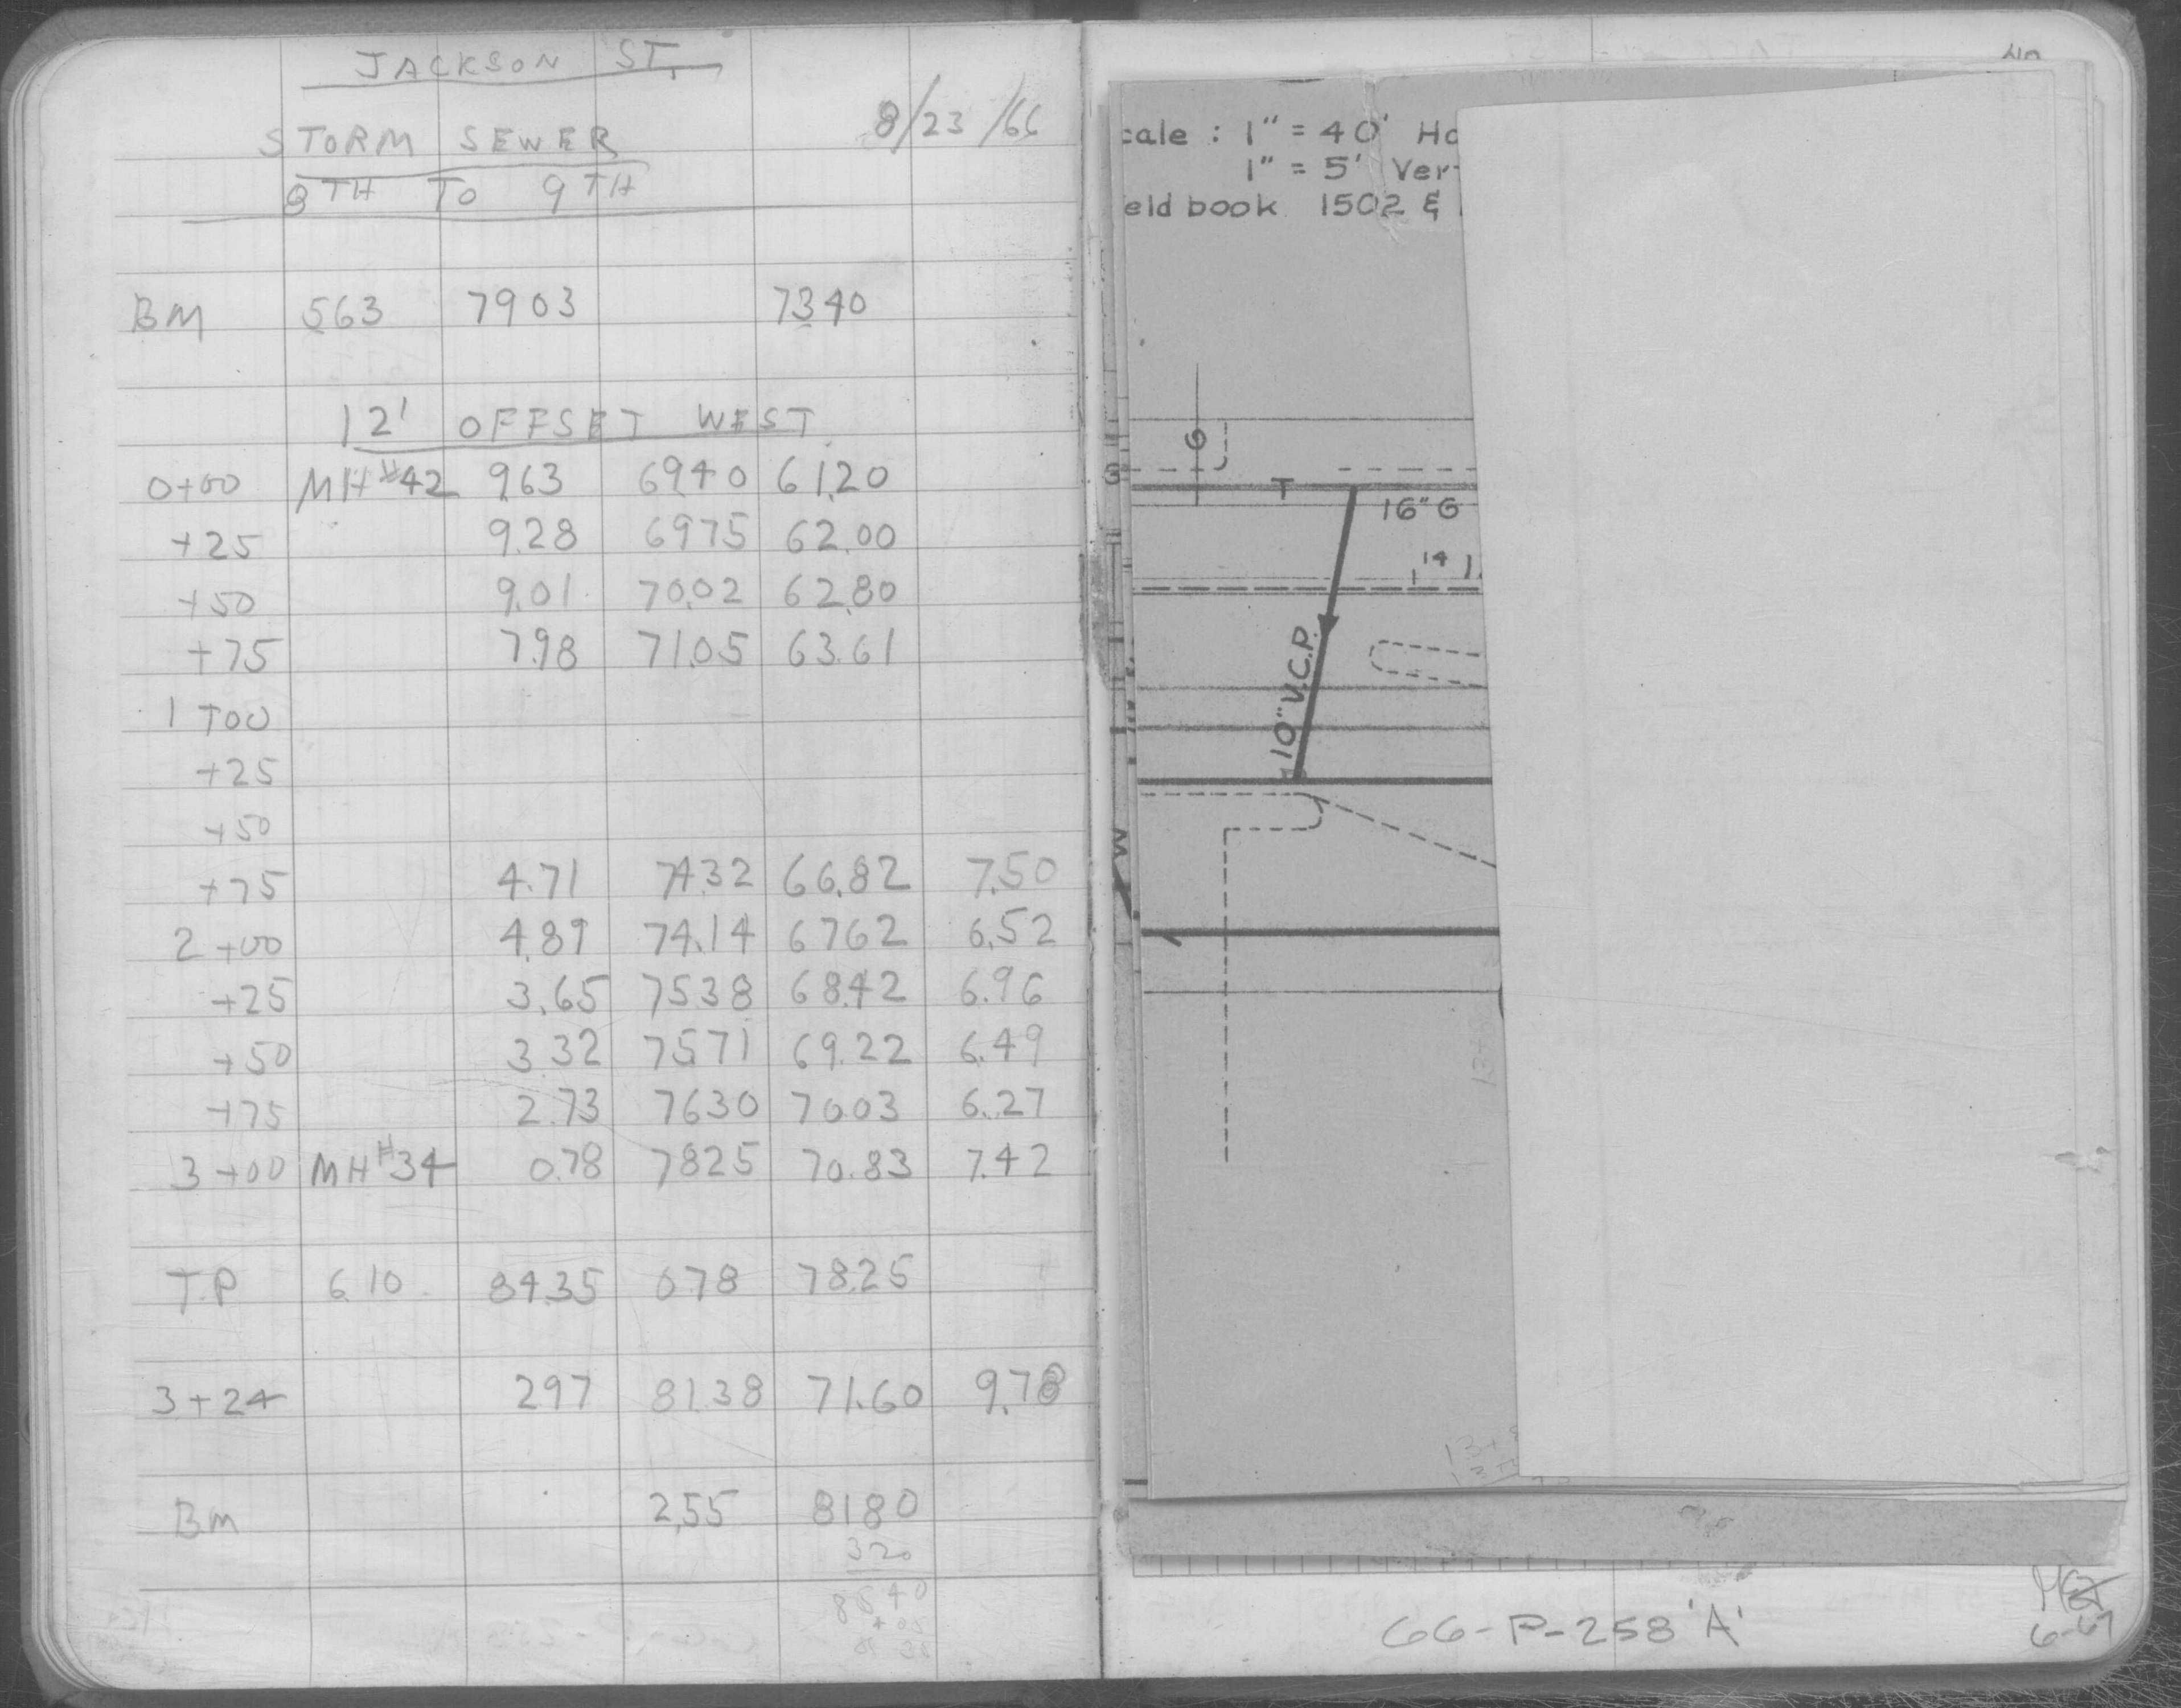 JACKSON ST.
8/23/66
STORM SEWER
8TH TO 9TH
BM 563 7903 7340
12' OFFSET WEST
0+00 MH#42 9.63 6940 61.20
+25 9.28 6975 62.00
+50 9.01 70.02 62.80
+75 7.98 71.05 63.61
1+00
+25
+50
+75 4.71 74.32 66.82 7.50
2+00 4.89 74.14 6762 6.52
+25 3.65 7538 68.42 6.96
+50 3.32 7571 69.22 6.49
+75 2.73 7630 70.03 6.27
3+00 MH#34 0.78 7825 70.83 7.42
T.P 6.10 84.35 078 78.25
3+24 297 81.38 71.60 9.78
BM 2.55 8180
320
cale : 1" = 40' Ho
1" = 5' Ver
eld book 1502 &
G
T
16" G
14
10" V.C.P.
W
66-P-258 'A'
6-67